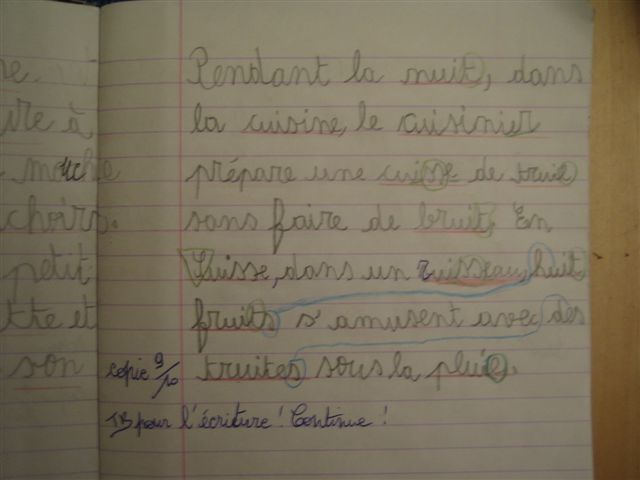 re.
Pendant la nuit, dans
ire à
la cuisine, le cuisinier
mouche
prépare une cuisse de truie
choirs.
sans faire de bruit. En
petit
Suisse, dans un ruisseau, huit
tte et
fruits s'amusent avec des
son
copie 9/10
truites sous la pluie.
TB pour l'écriture ! Continue !